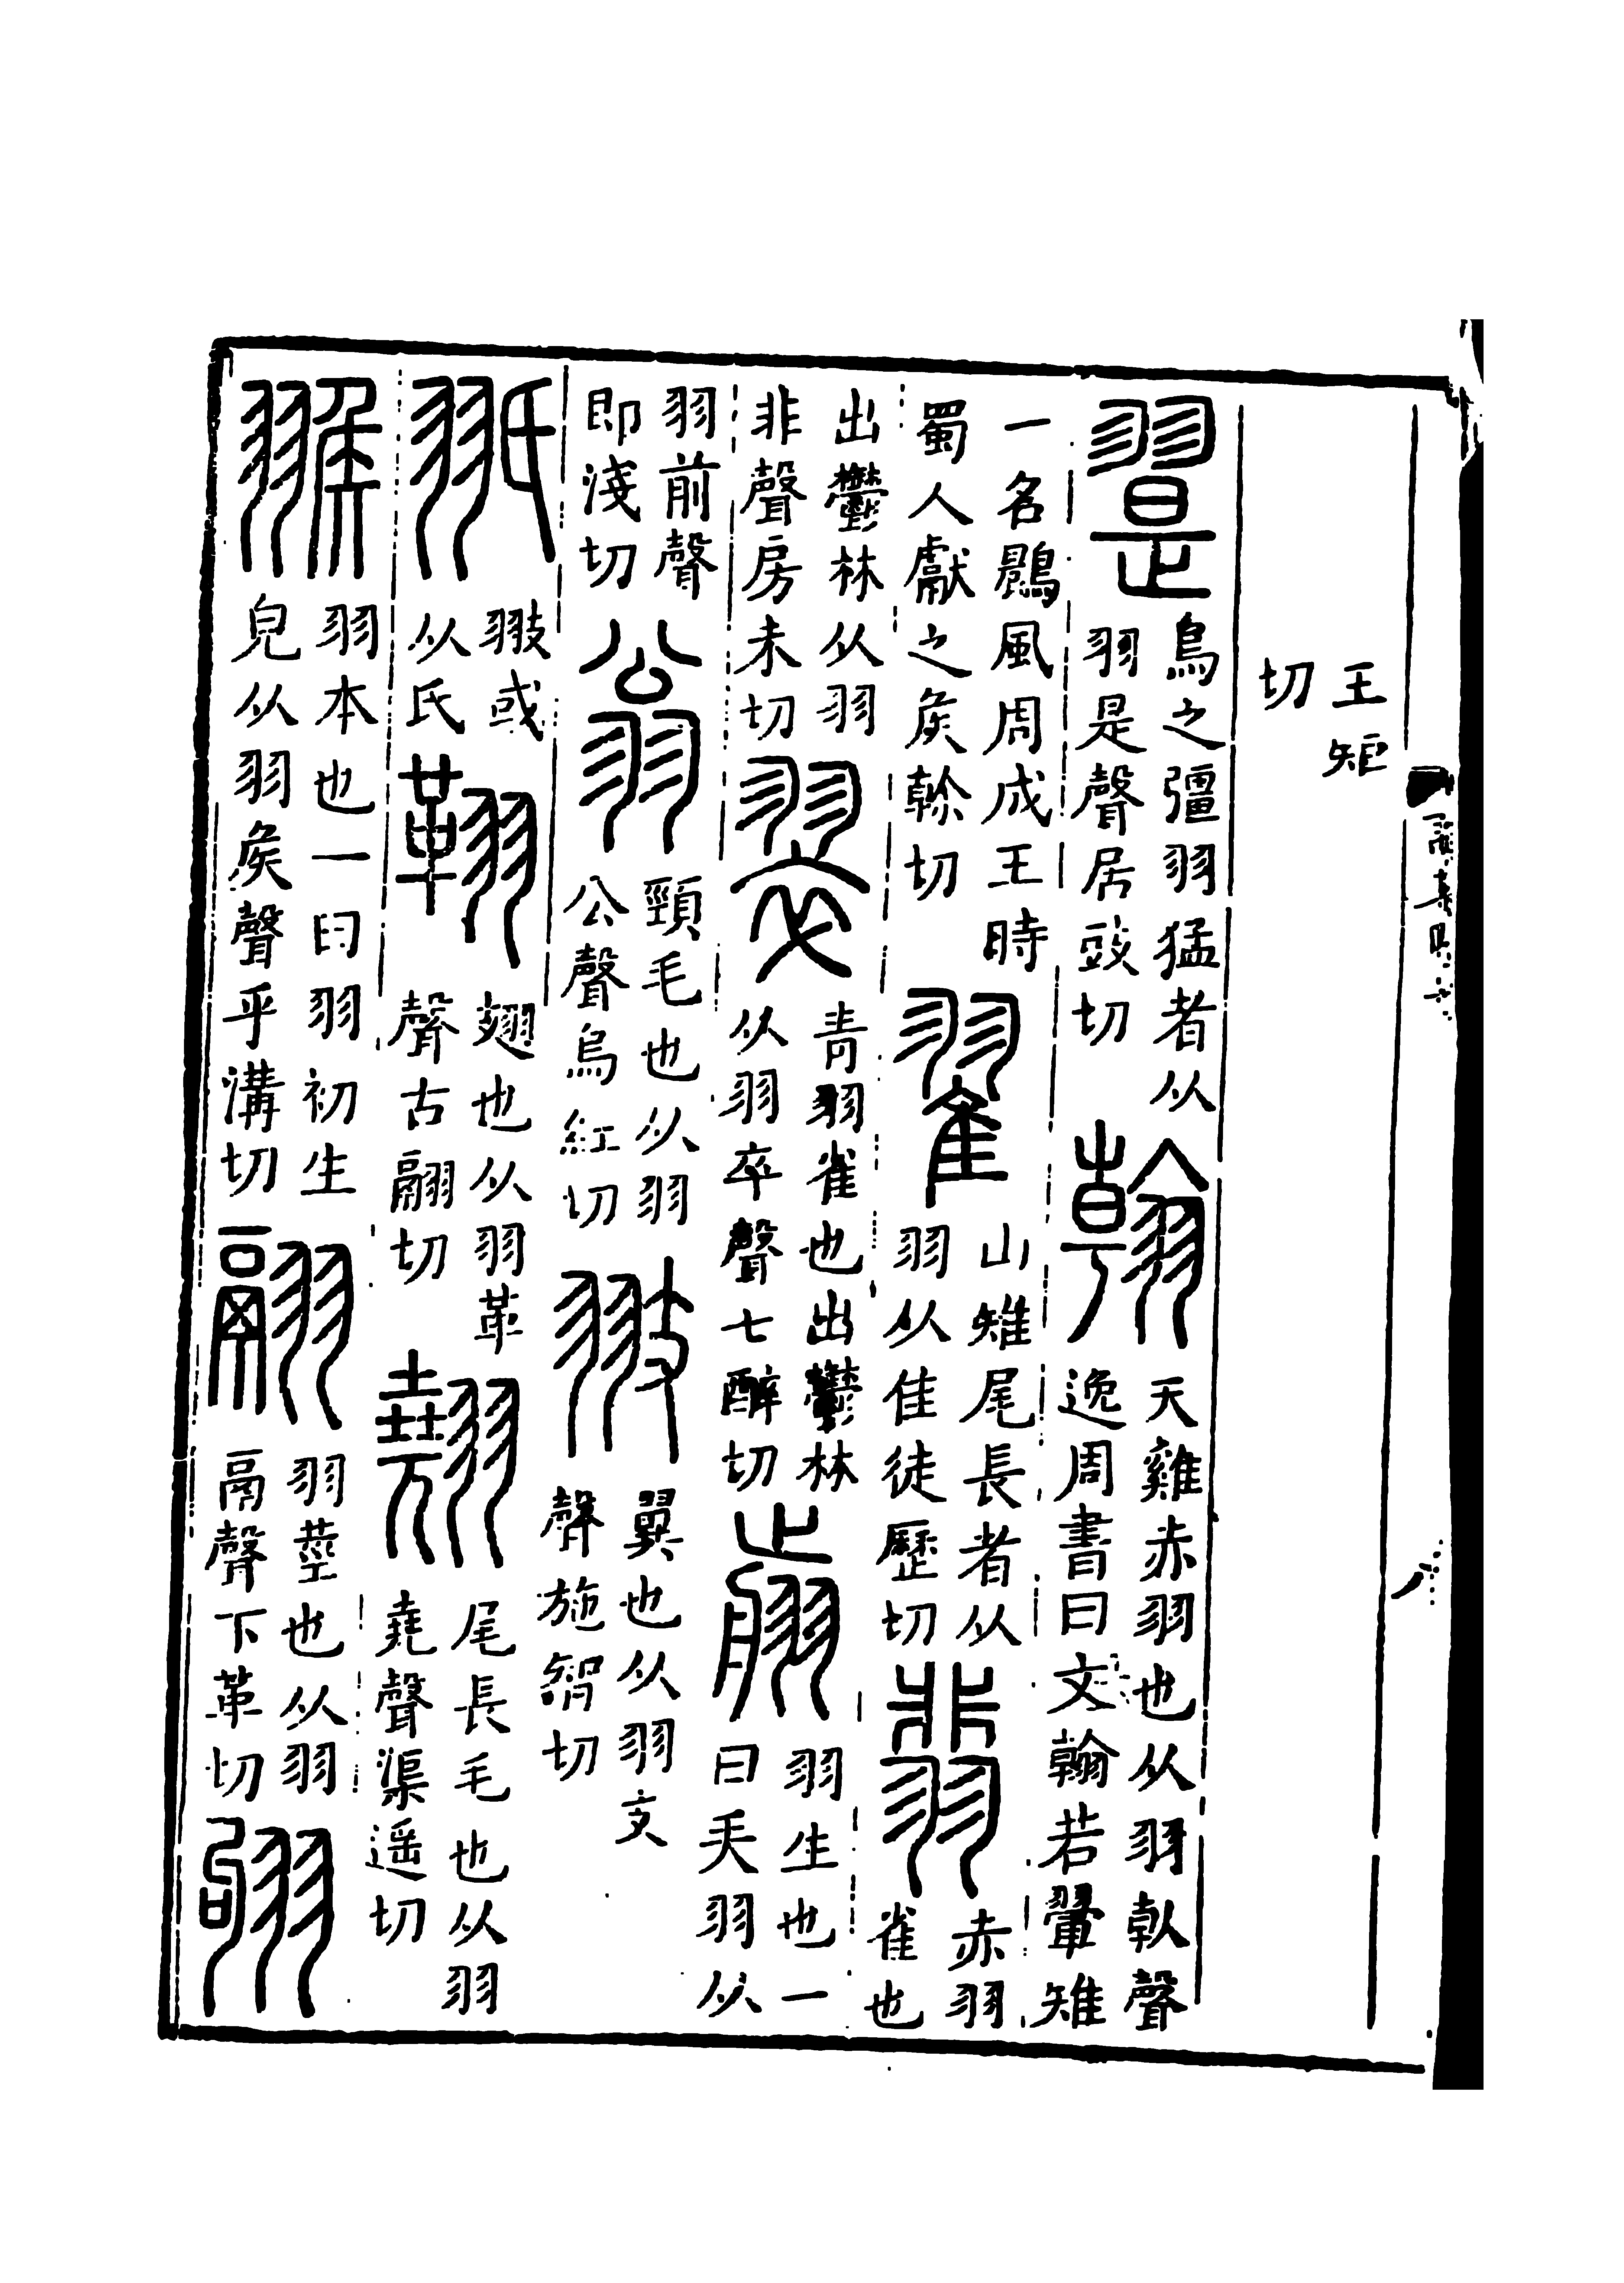 王矩切
翨鳥之彊羽猛者从羽是聲居豉切翰天雞赤羽也从羽倝聲逸周書曰文翰若翬雉
一名鷐風周成王時蜀人獻之矦榦切翟山雉尾長者从羽从隹徒歷切翡赤羽雀也
出鬱林从羽非聲房未切翠青羽雀也出鬱林从羽卒聲七醉切翦羽生也一曰矢羽从
羽前聲即淺切翁頸毛也从羽公聲烏紅切翄翼也从羽支聲施智切
𦐊翄或从氏䩯翅也从羽革聲古翮切翹尾長毛也从羽堯聲渠遥切
翭羽本也一曰羽初生皃从羽矦聲乎溝切翮羽莖也从羽鬲聲下革切翑